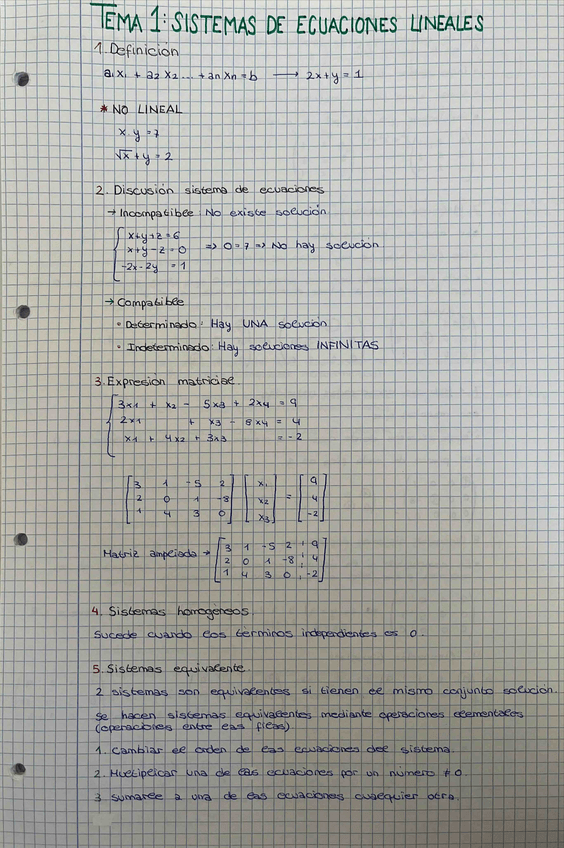 TEMA 1: SISTEMAS DE ECUACIONES LINEALES
1. Definición
a₁x₁ + a₂x₂ ... + anxn = b → 2x+y = 1
* NO LINEAL
x·y = 7
√x + y = 2
2. Discusión sistema de ecuaciones
→ Incompatible: No existe solución
x+y+z = 6
x+y-z = 0 => 0=7 => No hay solución
-2x-2y = 1
→ Compatible
• Determinado: Hay UNA solución
• Indeterminado: Hay soluciones INFINITAS
3. Expresión matricial.
3x1 + x2 - 5x3 + 2x4 = 9
2x1 + x3 - 8x4 = 4
x1 + 4x2 + 3x3 = -2
3 1 -5 2 x₁ 9
2 0 1 -8 x2 = 4
1 4 3 0 x3 -2
3 1 -5 2 9
Matriz ampliada → 2 0 1 -8 4
1 4 3 0 -2
4. Sistemas homogeneos.
Sucede cuando los terminos independientes es 0.
5. Sistemas equivalente.
2 sistemas son equivalentes si tienen el mismo conjunto solución.
se hacen sistemas equivalentes mediante operaciones elementales
(operaciones entre las filas).
1. Cambiar el orden de las ecuaciones del sistema.
2. Multiplicar una de las ecuaciones por un numero ≠ 0.
3 sumarle a una de las ecuaciones cualquier otra.